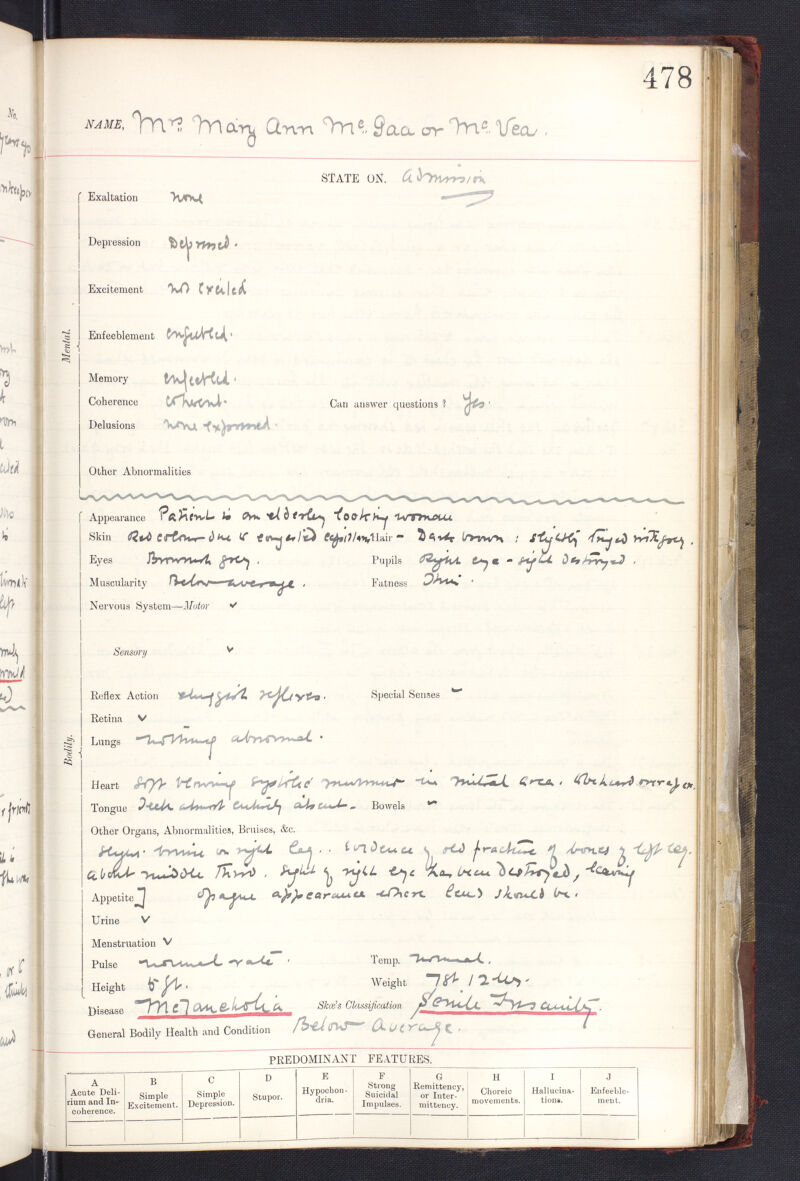 478
NAME, Mrs Mary Ann Mc Gaa or Mc Vea.
STATE ON, Admission
Mental.
Exaltation none
Depression Depressed.
Excitement not Excited
Enfeeblement enfeebled.
Memory enfeebled.
Coherence coherent. Can answer questions? Yes.
Delusions none expressed.
Other Abnormalities
Bodily.
Appearance Patient is an elderly looking woman
Skin Red colour due to congested capillaries Hair - Dark brown: slightly tinged with grey.
Eyes Brownish grey. Pupils Right eye - sight destroyed.
Muscularity Below average. Fatness Thin.
Nervous System—Motor ✓
Sensory ✓
Reflex Action sluggish reflexes. Special Senses
Retina ✓
Lungs nothing abnormal.
Heart Soft blowing systolic murmur in mitral area. also heard over apex.
Tongue Teeth almost entirely absent. Bowels
Other Organs, Abnormalities, Bruises, &c.
slight bruise on right leg.. Evidence of old fracture of bones of left leg.
about middle third. Sight of right eye has been destroyed, leaving
Appetite ] opaque appearance where lens should be.
Urine ✓
Menstruation ✓
Pulse normal rate. Temp. normal.
Height 5 ft. Weight 7st 12 lbs.
Disease Melancholia Skae's Classification Senile Insanity.
General Bodily Health and Condition Below Average.
PREDOMINANT FEATURES.
A B C D E F G H I J
Acute Deli-rium and In-coherence. Simple Excitement. Simple Depression. Stupor. Hypochon-dria. Strong Suicidal Impulses. Remittency, or Inter-mittency. Choreic movements. Hallucina-tions. Enfeeble-ment.